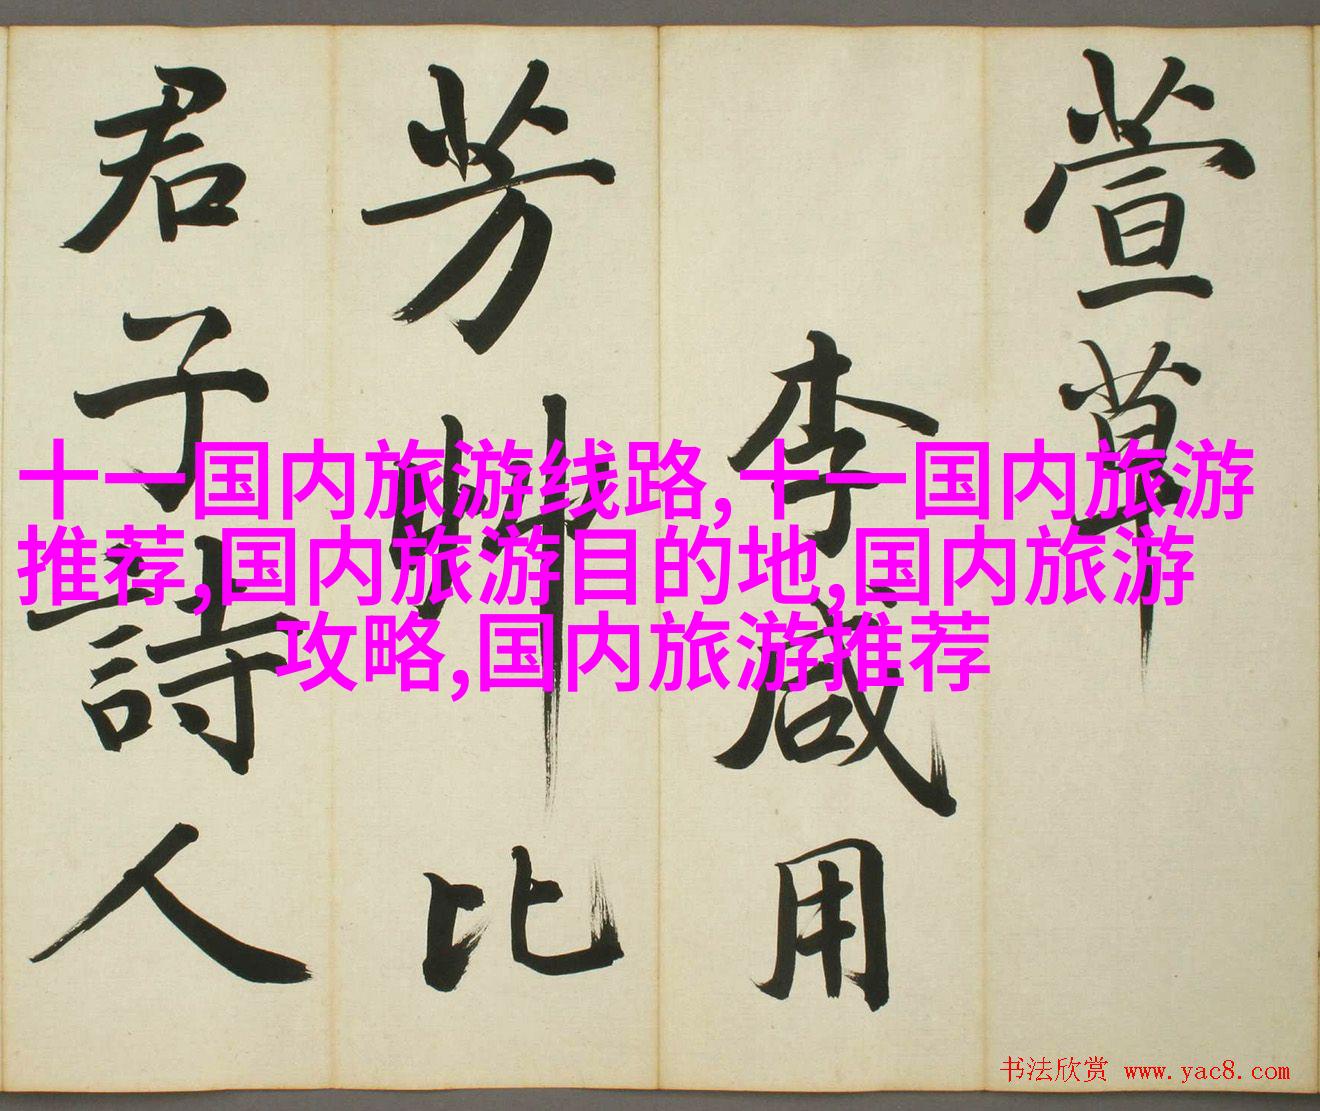 萱草
李咸用
芳艸比
君子詩人
十一国内旅游线路,十一国内旅游
推荐,国内旅游目的地,国内旅游
攻略,国内旅游推荐
书法欣赏 www.yac8.com